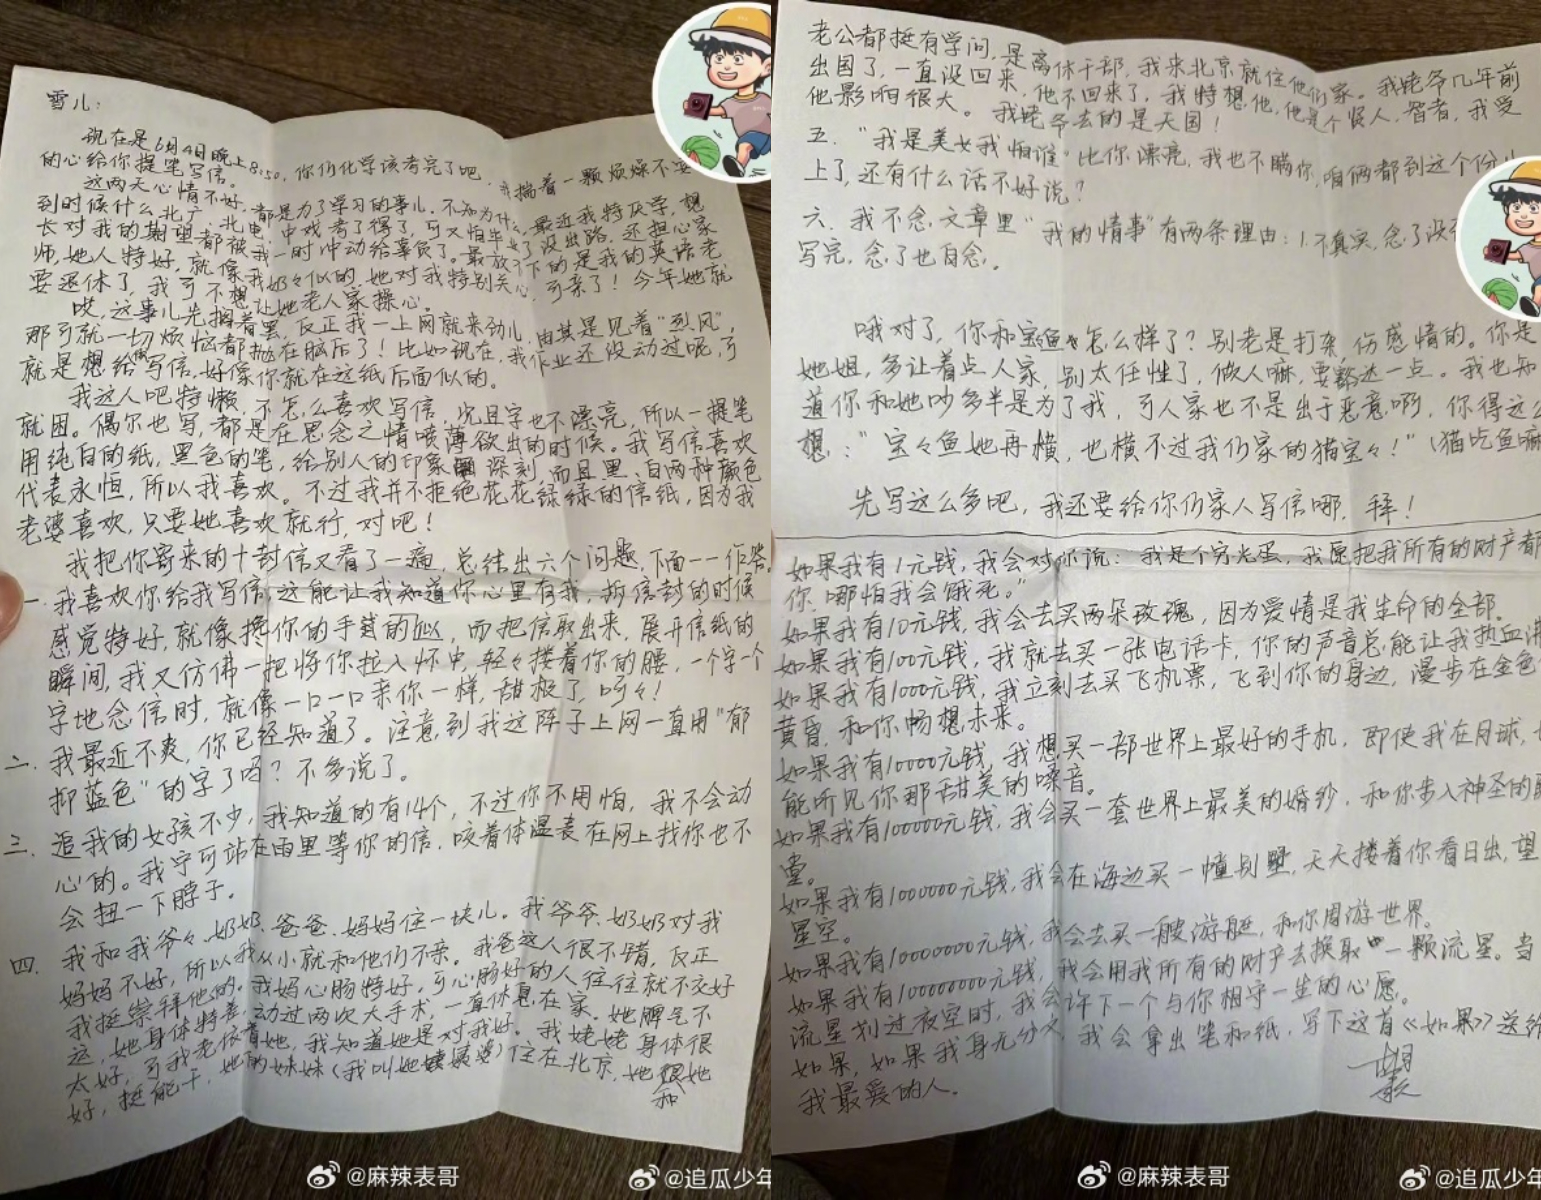 雪儿:
现在是6月4日晚上8:50,你们化学该考完了吧,我揣着一颗烦燥不安
的心给你提笔写信。
这两天心情不好,都是为了学习的事儿.不知为什么,最近我特厌学,想
到时候什么北广、北电、中戏考了得了,可又怕毕业了没出路,还担心家
长对我的期望都被我一时冲动给辜负了。最放不下的是我的英语老
师,她人特好,就像我奶々似的,她对我特别关心,可亲了!今年她就
要退休了,我可不想让她老人家操心。
哎,这事儿先搁着罢,反正我一上网就来劲儿,由其是见着“烈风”,
那可就一切烦恼都抛在脑后了!比如现在,我作业还没动过呢,可
就是想给你写信,好像你就在这纸后面似的。
我这人吧特懒,不怎么喜欢写信,况且字也不漂亮,所以一提笔
就困。偶尔也写,都是在思念之情喷薄欲出的时候。我写信喜欢
用纯白的纸,黑色的笔,给别人的印象深刻,而且黑、白两种颜色
代表永恒,所以我喜欢。不过我并不拒绝花花绿绿的信纸,因为我
老婆喜欢,只要她喜欢就行,对吧!
我把你寄来的十封信又看了一遍,总结出六个问题,下面一一作答。
一.我喜欢你给我写信,这能让我知道你心里有我,拆信封的时候
感觉特好,就像搀你的手似的,而把信取出来,展开信纸的
瞬间,我又仿佛一把将你拉入怀中,轻々搂着你的腰,一个字一个
字地念信时,就像一口一口亲你一样,甜极了,呵々!
二.我最近不爽,你已经知道了。注意到我这阵子上网一直用“郁
抑蓝色”的字了吗?不多说了。
三.追我的女孩不少,我知道的有14个,不过你不用怕,我不会动
心的。我宁可站在雨里等你的信,咬着体温表在网上找你也不
会扭一下脖子。
四.我和我爷々、奶奶、爸爸、妈妈住一块儿。我爷爷、奶奶对我
妈妈不好,所以我从小就和他们不亲。我爸这人很不错,反正
我挺崇拜他的。我妈心肠特好,可心肠好的人往往就不交好
运,她身体特差,动过两次大手术,一直休息在家。她脾气不
太好,可我老依着她,我知道她是对我好。我姥姥身体很
好,挺能干,她的妹妹(我叫她姨婆)住在北京,她和她
老公都挺有学问,是离休干部,我来北京就住他们家。我姥爷几年前
出国了,一直没回来,他不回来了,我特想他,他是个贤人、智者,我受
他影响很大。我姥爷去的是天国!
五.“我是美女我怕谁”比你漂亮,我也不瞒你,咱俩都到这个份儿
上了,还有什么话不好说?
六.我不念文章里“我的情事”有两条理由:1.不真实,念了没
写完,念了也白念。
哦对了,你和宝々鱼怎么样了?别老是打架,伤感情的。你是
她姐,多让着点人家,别太任性了,做人嘛,要豁达一点。我也知
道你和她吵多半是为了我,可人家也不是出于恶意啊,你得这么
想:“宝々鱼她再横,也横不过我们家的猫宝々!”(猫吃鱼嘛
先写这么多吧,我还要给你们家人写信哪,拜!
如果我有1元钱,我会对你说:“我是个穷光蛋,我愿把我所有的财产都
你,哪怕我会饿死。”
如果我有10元钱,我会去买两朵玫瑰,因为爱情是我生命的全部。
如果我有100元钱,我就去买一张电话卡,你的声音总能让我热血沸
如果我有1000元钱,我立刻去买飞机票,飞到你的身边,漫步在金色
黄昏,和你畅想未来。
如果我有10000元钱,我想买一部世界上最好的手机,即使我在月球,也
能听见你那甜美的嗓音。
如果我有100000元钱,我会买一套世界上最美的婚纱,和你步入神圣的
堂。
如果我有1000000元钱,我会在海边买一幢别墅,天天搂着你看日出,望
星空。
如果我有10000000元钱,我会去买一艘游艇,和你周游世界。
如果我有100000000元钱,我会用我所有的财产去换取一颗流星。当
流星划过夜空时,我会许下一个与你相守一生的心愿。
如果,如果我身无分文,我会拿出笔和纸,写下这首《如果》送给
我最爱的人。
@麻辣表哥
@追瓜少年
@麻辣表哥
@追瓜少年